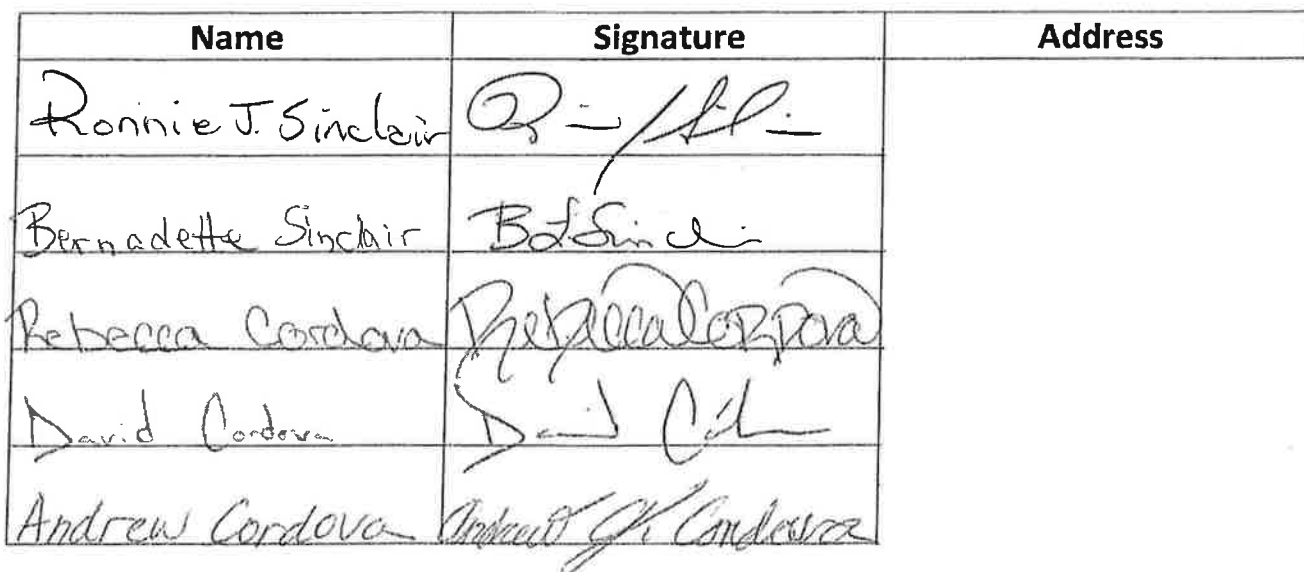 Name Signature Address
Ronnie J. Sinclair
Bernadette Sinclair B L Sincl
Rebecca Cordova Rebecca Cordova
David Cordova David
Andrew Cordova Andrew Cordova